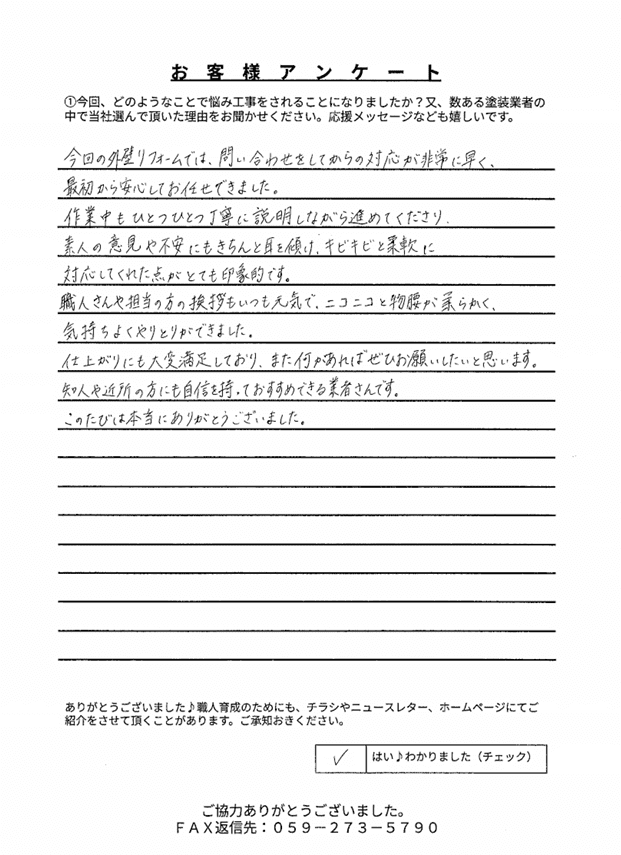 お客様アンケート
①今回、どのようなことで悩み工事をされることになりましたか？又、数ある塗装業者の
中で当社選んで頂いた理由をお聞かせください。応援メッセージなども嬉しいです。
今回の外壁リフォームでは、問い合わせをしてからの対応が非常に早く、
最初から安心してお任せできました。
作業中もひとつひとつ丁寧に説明しながら進めてくださり、
素人の意見や不安にもきちんと耳を傾け、キビキビと柔軟に
対応してくれた点がとても印象的です。
職人さんや担当の方の挨拶もいつも元気で、ニコニコと物腰が柔らかく、
気持ちよくやりとりができました。
仕上がりにも大変満足しており、また何かあればぜひお願いしたいと思います。
知人や近所の方にも自信を持っておすすめできる業者さんです。
このたびは本当にありがとうございました。
ありがとうございました♪職人育成のためにも、チラシやニュースレター、ホームページにてご
紹介をさせて頂くことがあります。ご承知おきください。
✓ はい♪わかりました（チェック）
ご協力ありがとうございました。
ＦＡＸ返信先：０５９－２７３－５７９０